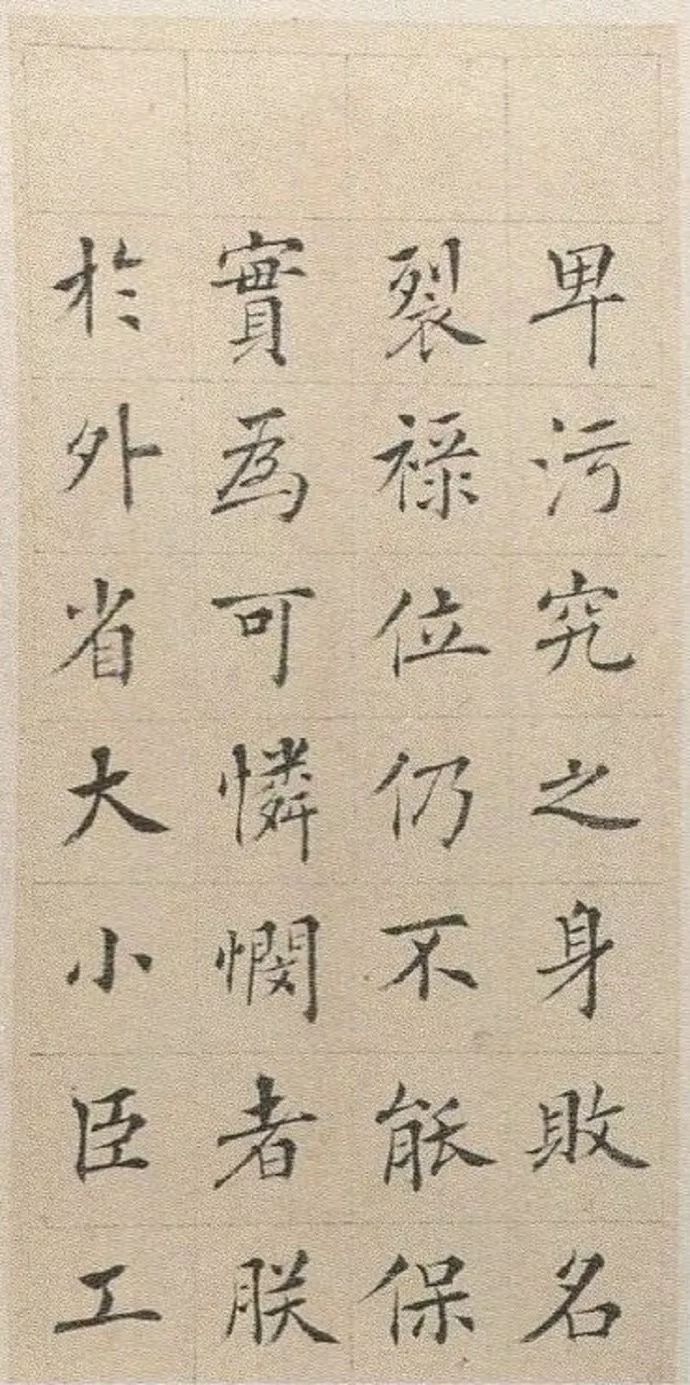 卑污究之身敗名
裂祿位仍不能保
實為可憐憫者朕
於外省大小臣工